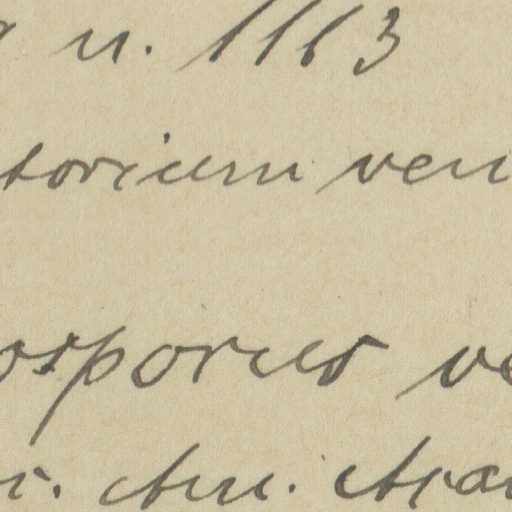 n. 1163
torium ven
osporus ve
r. Am. Acad